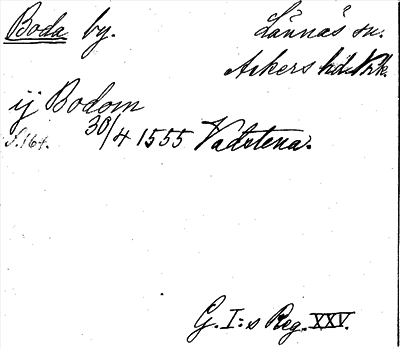 Boda by. Lännäs sn.
Askers hd. Nrk.
ij Bodom
S. 164. 30/4 1555 Vadstena.
G. I:s Reg. XXV.